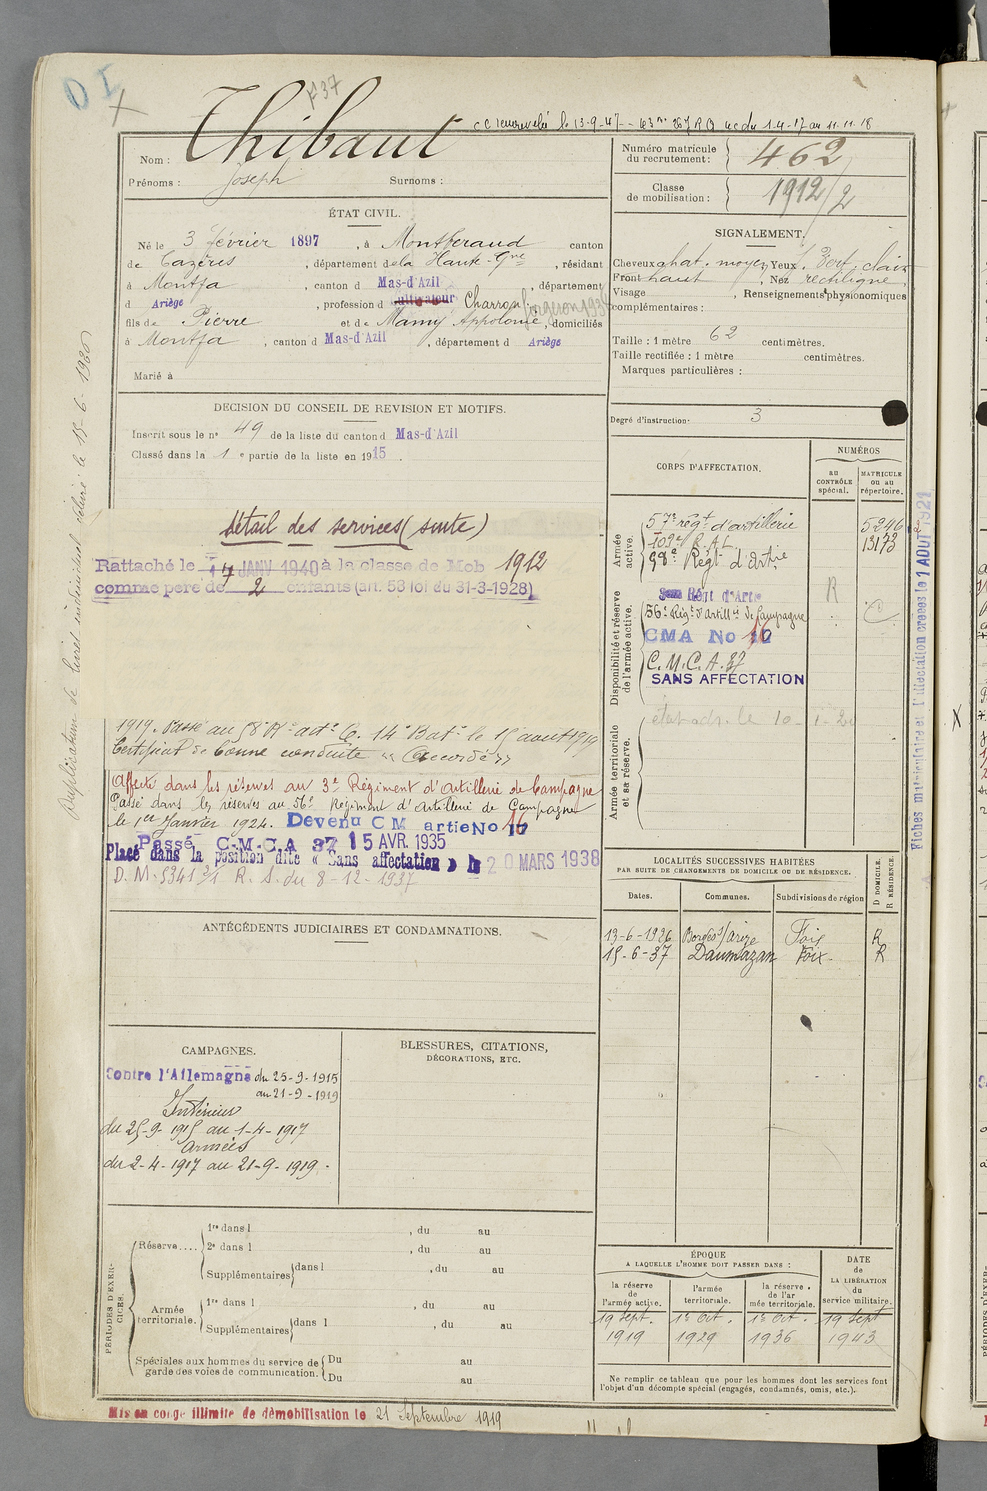 O I
F 37
C C renouvelée le 13-9-47 - 63ne 267 R A ac du 1-4-17 au 11-11-18
Nom : Thibaut
Prénoms : Joseph Surnoms :
ÉTAT CIVIL.
Né le 3 février 1897, à Montberaud canton
de Cazères, département de la Haute-Gne, résidant
à Montfa, canton d Mas-d'Azil, département
d Ariège, profession d cultivateur Charron forgeron
fils de Pierre et de Mamy Appolonie, domiciliés
à Montfa, canton d Mas-d'Azil, département d Ariège
Marié à
DECISION DU CONSEIL DE REVISION ET MOTIFS.
Inscrit sous le n° 49 de la liste du canton d Mas-d'Azil
Classé dans la 1e partie de la liste en 1915.
Détail des services (suite)
Rattaché le 17 JANV 1940 à la classe de Mob 1912
comme père de 2 enfants (art. 58 loi du 31-3-1928)
1919. Passé au 58e Rt arte C. 14e Bat. le 15 aout 1919
Certificat de bonne conduite "Accordé"
Affecté dans les réserves au 3e Régiment d'Artillerie de Campagne
Passé dans les réserves au 56e Régiment d'Artillerie de Campagne
le 1er Janvier 1924. Devenu C M artie No 17 16
Passé C-M-C-A 37 15 AVR. 1935
Placé dans la position dite « Sans affectation » le 20 MARS 1938
D. M. 5341 2/1 R. S. du 8-12-1937
ANTÉCÉDENTS JUDICIAIRES ET CONDAMNATIONS.
CAMPAGNES.
Contre l'Allemagne du 25-9-1915
au 21-9-1919
Intérieur
du 25-9-1915 au 1-4-1917
Armées
du 2-4-1917 au 21-9-1919.
BLESSURES, CITATIONS,
DÉCORATIONS, ETC.
PÉRIODES D'EXERCICES.
Réserve....
1re dans l , du au
2e dans l , du au
Supplémentaires dans l , du au
Armée territoriale.
1re dans l , du au
Supplémentaires dans l , du au
Spéciales aux hommes du service de garde des voies de communication.
Du au
Du au
Mis en congé illimité de démobilisation le 21 Septembre 1919
Numéro matricule du recrutement : 462
Classe de mobilisation : 1912/2
SIGNALEMENT.
Cheveux chat. moyen Yeux Vert clair
Front haut, Nez rectiligne
Visage , Renseignements physionomiques
complémentaires :
Taille : 1 mètre 62 centimètres.
Taille rectifiée : 1 mètre centimètres.
Marques particulières :
Degré d'instruction : 3
CORPS D'AFFECTATION.
NUMÉROS
AU CONTRÔLE spécial.
MATRICULE ou au répertoire.
Armée active.
57e régt d'artillerie 5246
109e R.A.L. 13173
58e Régt d'Artie
Disponibilité et réserve de l'armée active.
Régt d'Artie R
56e Régt d'Artillerie de Campagne C
CMA No 16
C.M.C.A. 37
SANS AFFECTATION
Armée territoriale et sa réserve.
LOCALITÉS SUCCESSIVES HABITÉES
PAR SUITE DE CHANGEMENTS DE DOMICILE OU DE RÉSIDENCE.
Dates. Communes. Subdivisions de région D DOMICILE. R RÉSIDENCE.
13-6-1926 Bordes s/ Arize Foix R
15-6-37 Daumazan Foix R
ÉPOQUE
A LAQUELLE L'HOMME DOIT PASSER DANS :
la réserve de l'armée active.
l'armée territoriale.
la réserve de l'armée territoriale.
DATE DE LA LIBÉRATION du service militaire.
19 Sept. 1919
1er Oct. 1929
1er Oct. 1936
19 Sept 1943
Ne remplir ce tableau que pour les hommes dont les services font
l'objet d'un décompte spécial (engagés, condamnés, omis, etc.).
Duplication de livret individuel délivré le 15-6-1926
Fiches matriculaire et d'affectation créées le 1 AOUT 1921